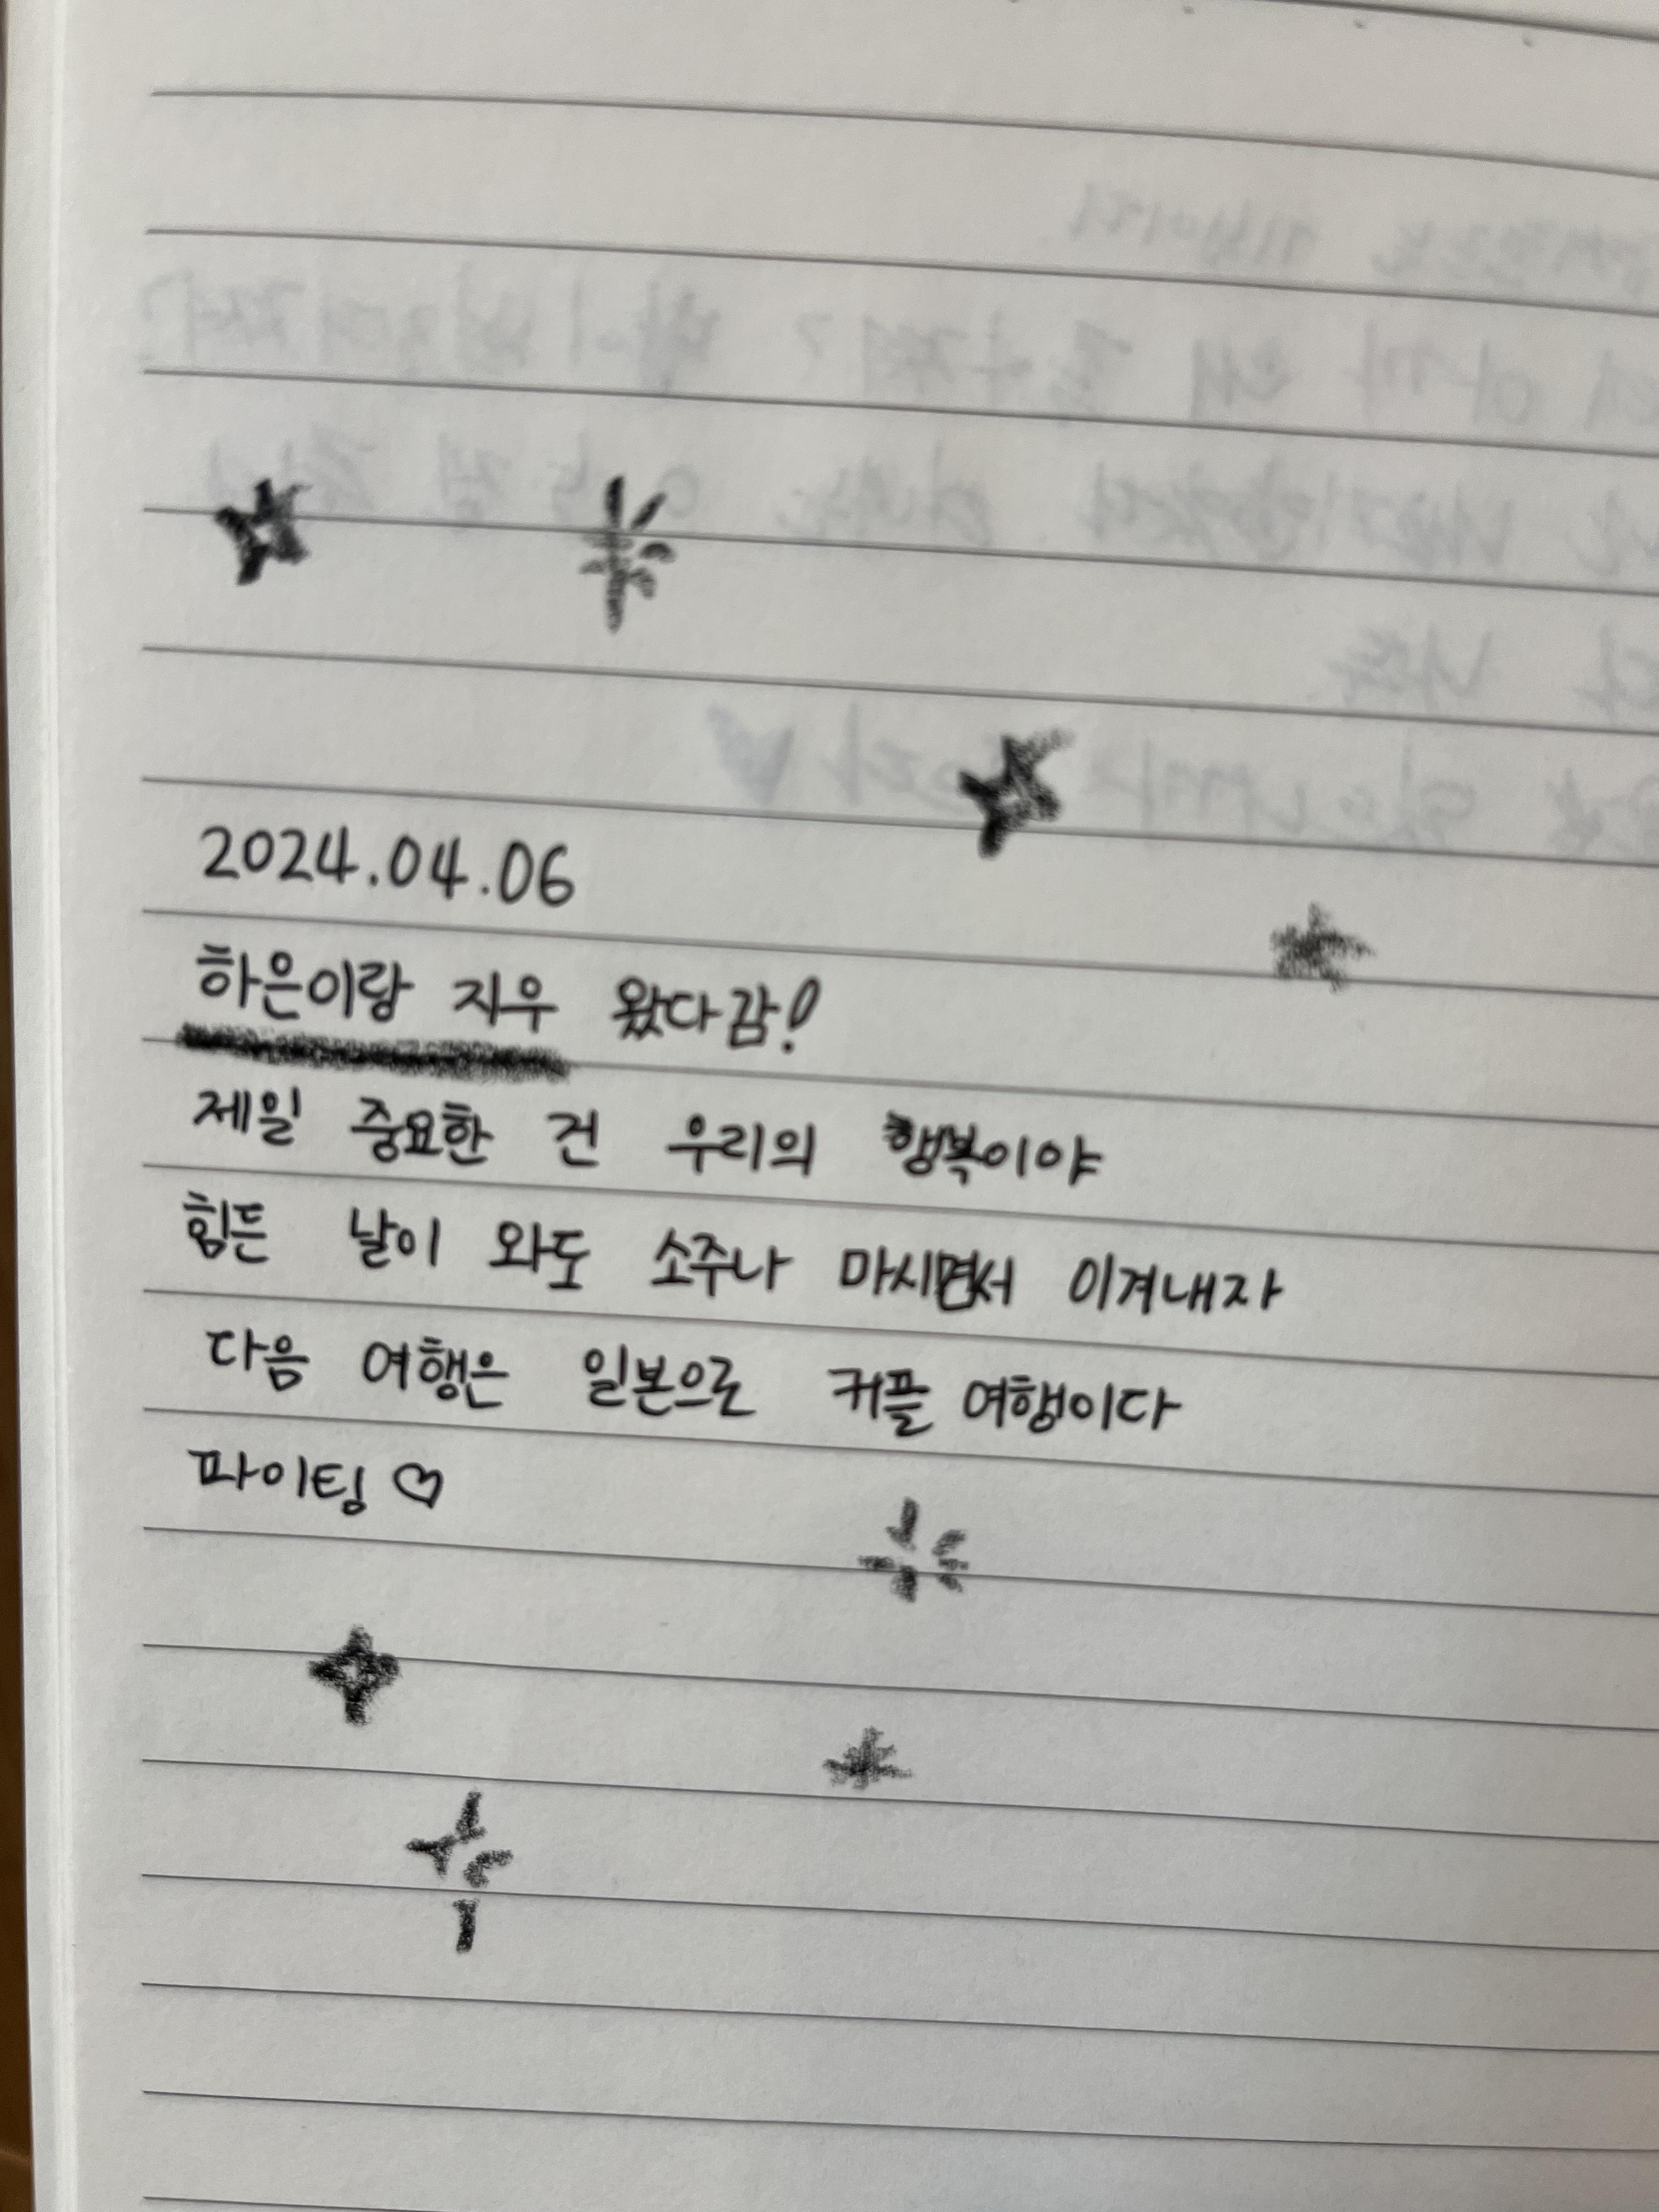 2024.04.06
하은이랑 지우 왔다감!
제일 중요한 건 우리의 행복이야
힘든 날이 와도 소주나 마시면서 이겨내자
다음 여행은 일본으로 커플 여행이다
파이팅 ♡